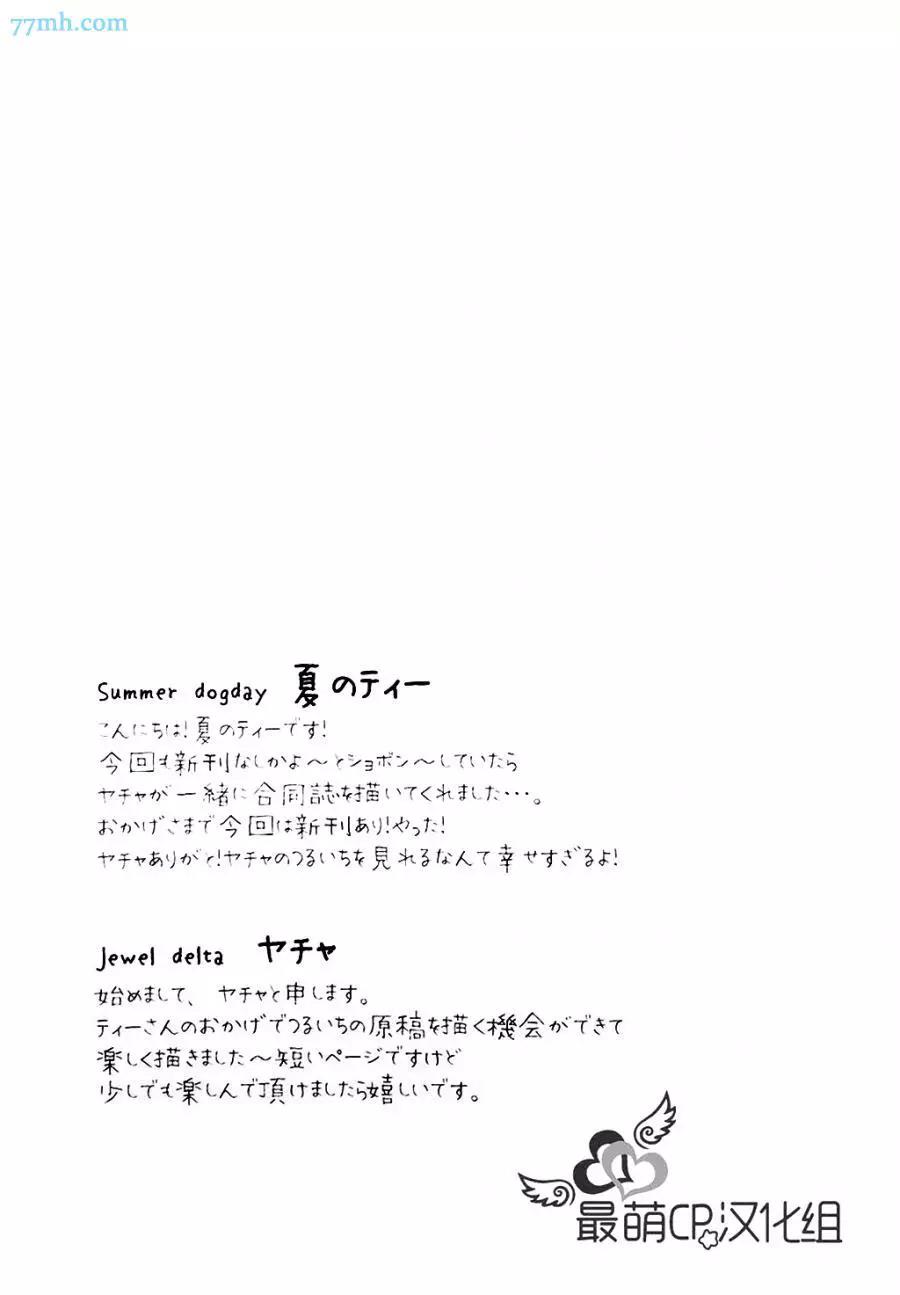 77mh.com
Summer dogday 夏のティー
こんにちは!夏のティーです!
今回も新刊なしかよ～とショボン～していたら
ヤチャが一緒に合同誌を描いてくれました・・・。
おかげさまで今回は新刊あり!やった!
ヤチャありがと!ヤチャのつるいちを見れるなんて幸せすぎるよ!
Jewel delta ヤチャ
始めまして、ヤチャと申します。
ティーさんのおかげでつるいちの原稿を描く機会ができて
楽しく描きました～短いページですけど
少しでも楽しんで頂けましたら嬉しいです。
最萌CP汉化组